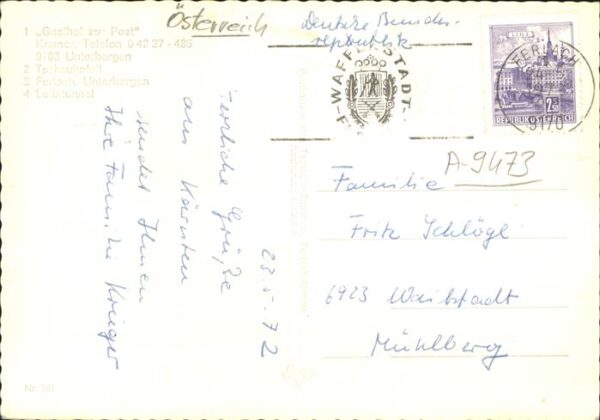 Österreich
Deutsche Bundes-
republik
1 „Gasthof zur Post"
Kramer, Telefon 0 42 27 - 485
9163 Unterbergen
2 Tscheukofall
3 Ferlach, Unterbergen
4 Loibltunnel
herzliche Grüße
aus Kärnten
sendet Ihnen
Ihre Familie Krieger
23.5.72
WAFFENSTADT
FERLACH
9170
LINZ
2S
REPUBLIK
A-9473
Familie
Fritz Schlögl
6923 Waibstadt
Mühlberg
Nr.